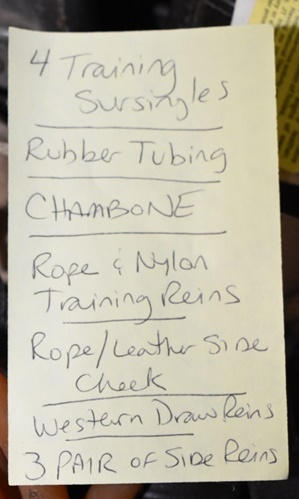 4 Training
Sursingles
Rubber Tubing
CHAMBONE
Rope & Nylon
Training Reins
Rope/Leather Side
Cheek
Western Draw Reins
3 PAIR OF SIDE Reins